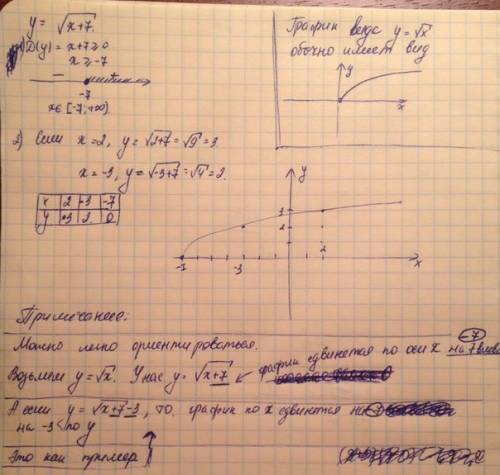 y = √x+7.
1) D(y) = x+7 ≥ 0
x ≥ -7
-7
x ∈ [-7; +∞).
График вида y = √x
обычно имеет вид
y
x
2) Если x = 2, y = √2+7 = √9 = 3.
x = -3, y = √-3+7 = √4 = 2.
x 2 -3 -7
y 3 2 0
y
3
2
-7 -3 2 x
Примечание:
Можно легко ориентироваться.
Возьмём y = √x. У нас y = √x+7 ↙ график сдвинется по оси x на 7 влево
-7
А если y = √x+7-3, то график по x сдвинется на -7
на -3 по y
Это как пример